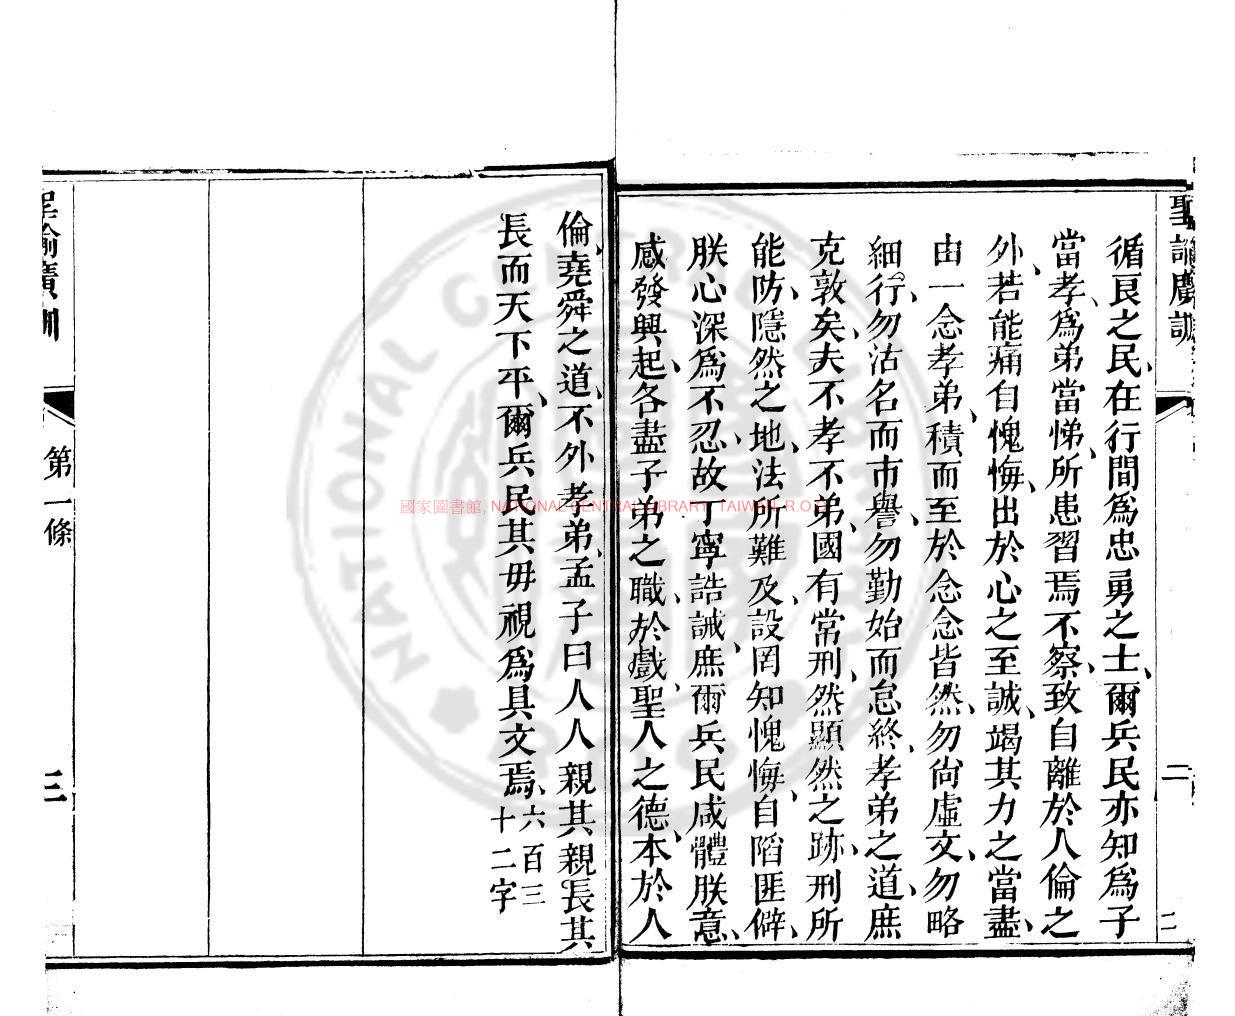 聖諭廣訓
二
循良之民、在行間為忠勇之士、爾兵民亦知為子
當孝、為弟當悌、所患習焉不察、致自離於人倫之
外、若能痛自愧悔、出於心之至誠、竭其力之當盡、
由一念孝弟、積而至於念念皆然、勿尙虛文、勿略
細行、勿沽名而市譽、勿勤始而怠終、孝弟之道、庶
克敦矣、夫不孝不弟、國有常刑、然顯然之跡、刑所
能防、隱然之地、法所難及、設罔知愧悔、自陷匪僻、
朕心深為不忍、故丁寧誥誡、庶爾兵民咸體朕意、
感發興起、各盡子弟之職、於戲、聖人之德、本於人
倫、堯舜之道、不外孝弟、孟子曰人人親其親長其
長而天下平、爾兵民其毋視為具文焉、
六百三
十二字
聖諭廣訓
第一條
三
國家圖書館, NATIONAL CENTRAL LIBRARY, TAIWAN, R.O.C